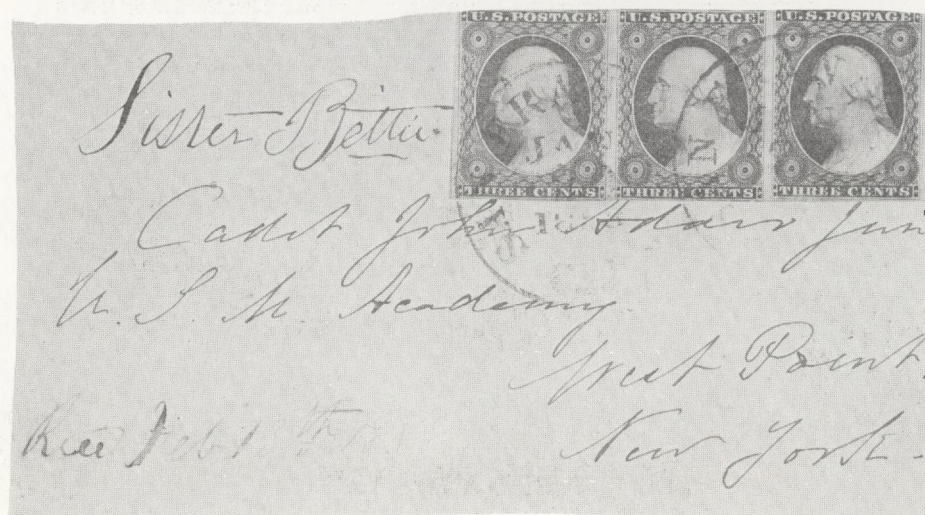 U.S. POSTAGE U.S. POSTAGE U.S. POSTAGE
THREE CENTS THREE CENTS THREE CENTS
Sister Bettie.
Cadet John Adair Jun
U. S. M. Academy
West Point,
New York.